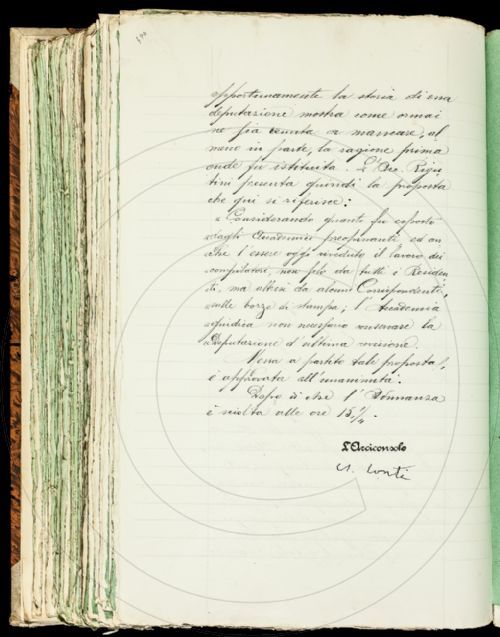 opportunamente la storia di essa
deputazione mostra come ormai
ne sia venuta a mancare, al
meno in parte, la ragione prima
onde fu istituita. L'Acc. Rigu
tini presenta quindi la proposta
che qui si riferisce:
"Considerando quanto fu esposto
"dagli Accademici preopinanti ed an
"che l'essere oggi riveduto il lavoro dei
"compilatori, non solo da tutti i Residen
"ti, ma altresì da alcuni Corrispondenti,
"sulle bozze di stampa; l'Accademia
"giudica non necessaria la
"Deputazione d'ultima revisione.
Messa a partito tale proposta,
è approvata all'unanimità.
Dopo di che l'Adunanza
è sciolta alle ore 15 1/4.
L'Arciconsolo
A. Conti